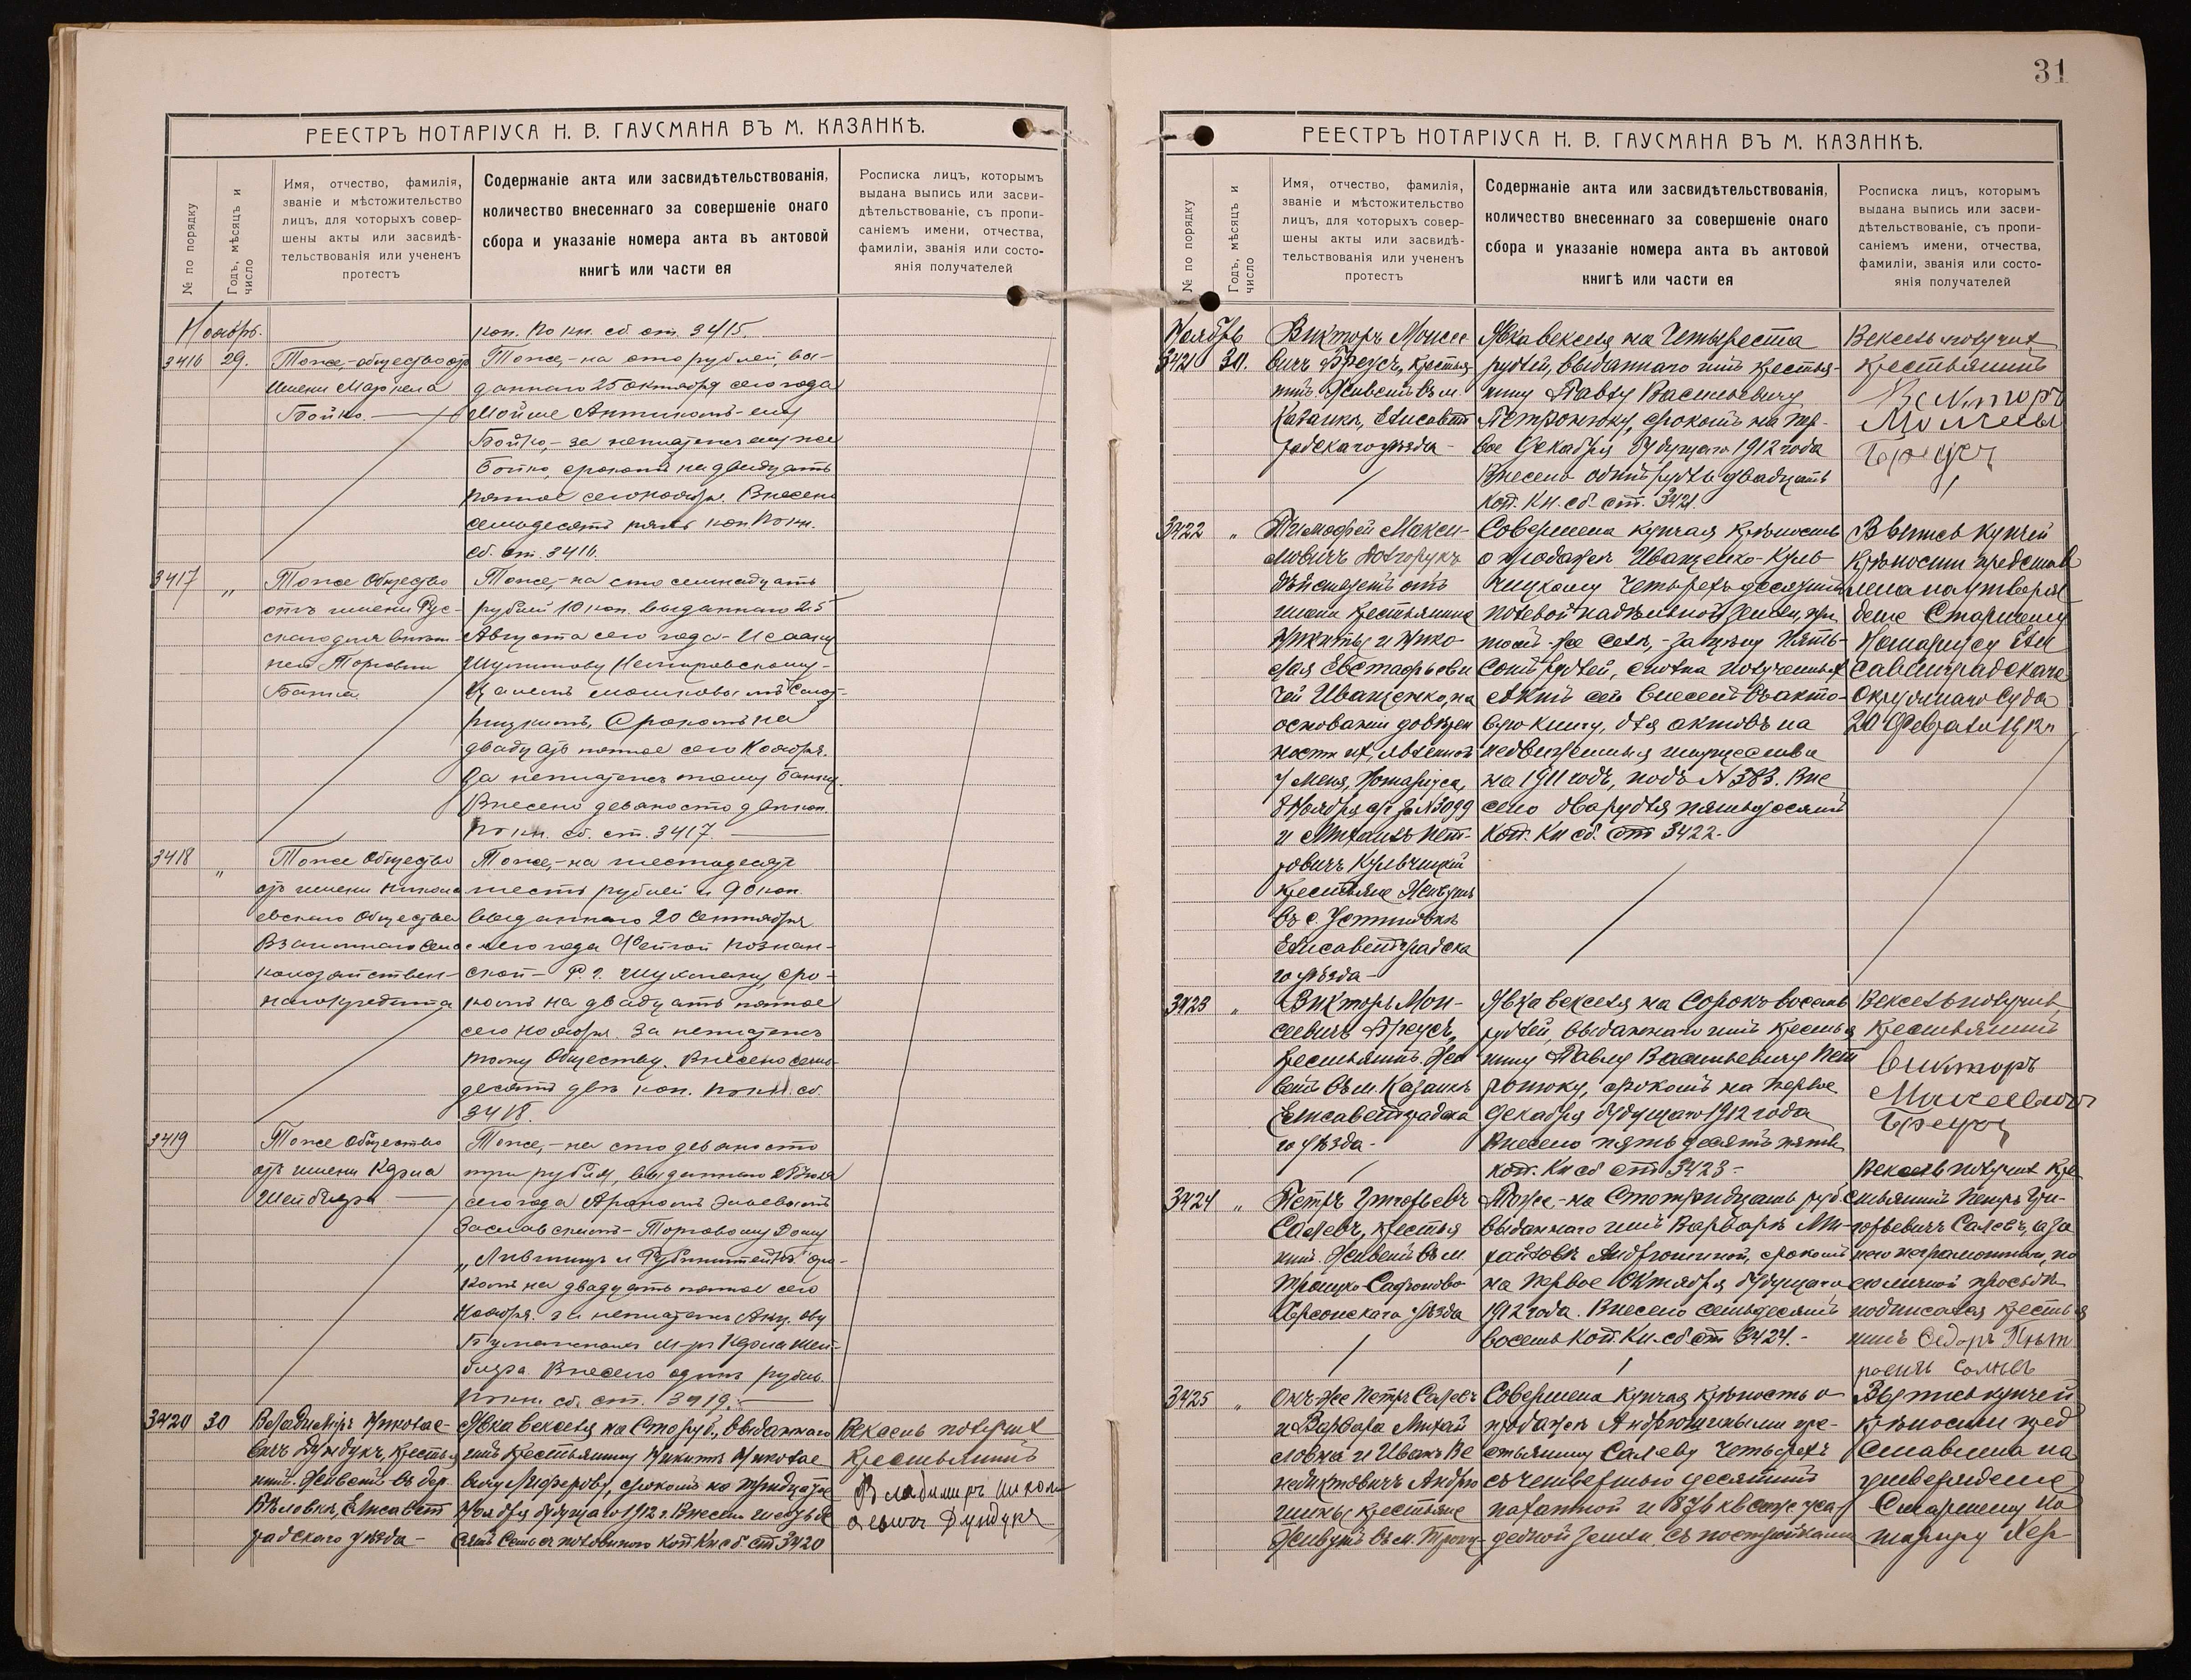 РЕЕСТРЪ НОТАРІУСА Н. В. ГАУСМАНА ВЪ М. КАЗАНКѢ.
№ по порядку
Годъ, мѣсяцъ и
число
Имя, отчество, фамилія,
званіе и мѣстожительство
лицъ, для которыхъ совер-
шены акты или засвидѣ-
тельствованія или учененъ
протестъ
Содержаніе акта или засвидѣтельствованія,
количество внесеннаго за совершеніе онаго
сбора и указаніе номера акта въ актовой
книгѣ или части ея
Росписка лицъ, которымъ
выдана выпись или засви-
дѣтельствованіе, съ пропи-
саніемъ имени, отчества,
фамиліи, званія или состо-
янія получателей
Ноябрь.
коп. По кн. сб. ст. 3415.
3416 29.
Тоже,-общество отъ
имени
Бойко
Тоже,-на сто рублей, вы-
даннаго 25 октября сего года
Бойко,-за неплатежъ ему же
Бойко, срокомъ на двадцать
пятое сего ноября. Внесено
семьдесятъ пять коп По кн.
сб. ст. 3416.
3417 "
Тоже Общество
отъ имени Рус-
скаго для внѣш-
ней Торговли
Банка
Тоже,-на сто семнадцать
рублей 10 коп. выданнаго 25
Августа сего года-Исааку
срокомъ на
двадцать пятое сего Ноября.
За неплатежъ тому Банку.
Внесено девяносто двѣ коп.
По кн. сб. ст. 3417.
3418 "
Тоже Общество
отъ имени Никола
евскаго Общества
Взаимнаго сель
скохозяйствен-
наго кредита
Тоже,-на шестьдесятъ
шесть рублей и 90 коп.
выданнаго 20 Сентября
сего года
сро-
комъ на двадцать пятое
сего ноября. За неплатежъ
тому Обществу. Внесено семь-
десятъ двѣ коп. По кн. сб.
3418.
3419
Тоже Общество
отъ имени
Тоже,-на сто девяносто
три рубля, выданнаго
сего года Арономъ
Заславскимъ-Торговому Дому
сро-
комъ на двадцать пятое сего
Ноября. за неплатежъ
Внесено одинъ рубль.
По кн. сб. ст. 3419.
3420 30
Владиміръ Николае-
вичъ Дундукъ, крестья
нинъ. Живетъ въ дер.
Бѣловкѣ, Елисавет
градскаго уѣзда-
Явка векселя на Сто руб., выданнаго
имъ крестьянину Никитѣ Николае
вичу срокомъ на тридцатое
Ноября будущаго 1912 г. Внесено шестьде
сятъ семь съ половиною коп Кн сб ст 3420
Вексель получилъ
Крестьянинъ
Владимиръ Никола
евичъ Дундукъ
31
РЕЕСТРЪ НОТАРІУСА Н. В. ГАУСМАНА ВЪ М. КАЗАНКѢ.
№ по порядку
Годъ, мѣсяцъ и
число
Имя, отчество, фамилія,
званіе и мѣстожительство
лицъ, для которыхъ совер-
шены акты или засвидѣ-
тельствованія или учененъ
протестъ
Содержаніе акта или засвидѣтельствованія,
количество внесеннаго за совершеніе онаго
сбора и указаніе номера акта въ актовой
книгѣ или части ея
Росписка лицъ, которымъ
выдана выпись или засви-
дѣтельствованіе, съ пропи-
саніемъ имени, отчества,
фамиліи, званія или состо-
янія получателей
Ноябрь
3421 30.
Викторъ Моисее
вичъ Бреусъ, крестья
нинъ. Живетъ въ м.
Казанкѣ, Елисавет
градскаго уѣзда-
Явка векселя на Четыреста
рублей, выданнаго имъ крестья-
нину Павлу Васильевичу
Петронюку, срокомъ на пер-
вое Декабря будущаго 1912 года
Внесено одинъ рубль двадцать
коп. Кн. сб. ст. 3421.
Вексель получилъ
крестьянинъ
Викторъ
Бреусъ
3422 "
Тимофей Макси-
мовичъ Долгорукъ
дѣйствуетъ отъ
имени крестьянина
Никиты и Нико-
лая Евстафьеви
чей Иващенко, на
основаніи довѣрен
ности ихъ, явленной
у меня, Нотаріуса,
8 Ноября с/г за № 3099
и Михаилъ Пет-
ровичъ Кульчицкій
крестьяне Живутъ
въ с. Устиновкѣ
Елисаветградска
го уѣзда-
Совершена купчая крѣпость
о продажѣ Иващенко-Куль-
чицкому Четырехъ десятинъ
полевой надѣльной земли, при
томъ-же селѣ,-за цѣну Пять-
сотъ рублей, сполна полученныхъ
Актъ сей внесенъ въ акто-
вую книгу, для актовъ на
недвижимыя имущества
на 1911 годъ, подъ № 383. Вне
сено два рубля пятьдесятъ
коп. Кн сб. ст 3422-
Выпись купчей
крѣпости представ
лена на утверж
деніе Старшему
Нотаріусу Ели
саветградскаго
Окружнаго Суда
20 Февраля 1912 г.
3423 "
Викторъ Мои-
сеевичъ Бреусъ,
крестьянинъ. Жи
ветъ въ м. Казанкѣ
Елисаветградска
го уѣзда-
Явка векселя на Сорокъ восемь
рублей, выданнаго имъ крестья
нину Павлу Васильевичу Пет
ронюку, срокомъ на первое
Декабря будущаго 1912 года
Внесено пятьдесятъ пять
коп. Кн сб ст 3423-
Вексель получилъ
Крестьянинъ
Викторъ
Моисеевичъ
Бреусъ
3424 "
Петръ Григорьевъ
Салевъ, крестья
нинъ. Живетъ въ м
Троицко-Сафоново
Херсонскаго уѣзда
Тоже,-на Сто тридцать руб.
выданнаго имъ Варварѣ Ми-
хайловнѣ Андрюшиной, срокомъ
на первое Октября будущаго
1912 года. Внесено семьдесятъ
восемь коп. Кн. сб ст 3424.-
Вексель получилъ Кре
стьянинъ Петръ Гри-
горьевичъ Салевъ, а за
него неграмотнаго, по
его личной просьбѣ
подписался крестья
нинъ Федоръ
3425 "
Онъ-же Петръ Салевъ
и Варвара Михай
ловна и Иванъ Ве
недиктовичъ Андрю
шины крестьяне
Живутъ въ м. Троиц-
Совершена купчая крѣпость о
продажѣ Андрюшиными кре-
стьянину Салеву Четырехъ
съ четвертью десятинъ
пахатной и 876 кв саж уса
дебной земли, съ постройками
Выпись купчей
крѣпости пред
ставлена на
утвержденіе
Старшему Но
таріусу Хер